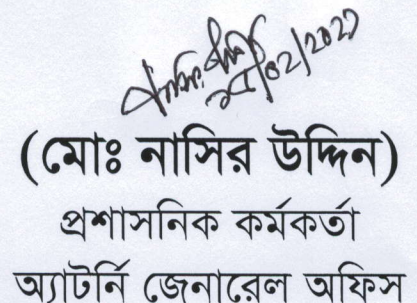 (মোঃ নাসির উদ্দিন)
প্রশাসনিক কর্মকর্তা
অ্যাটর্নি জেনারেল অফিস